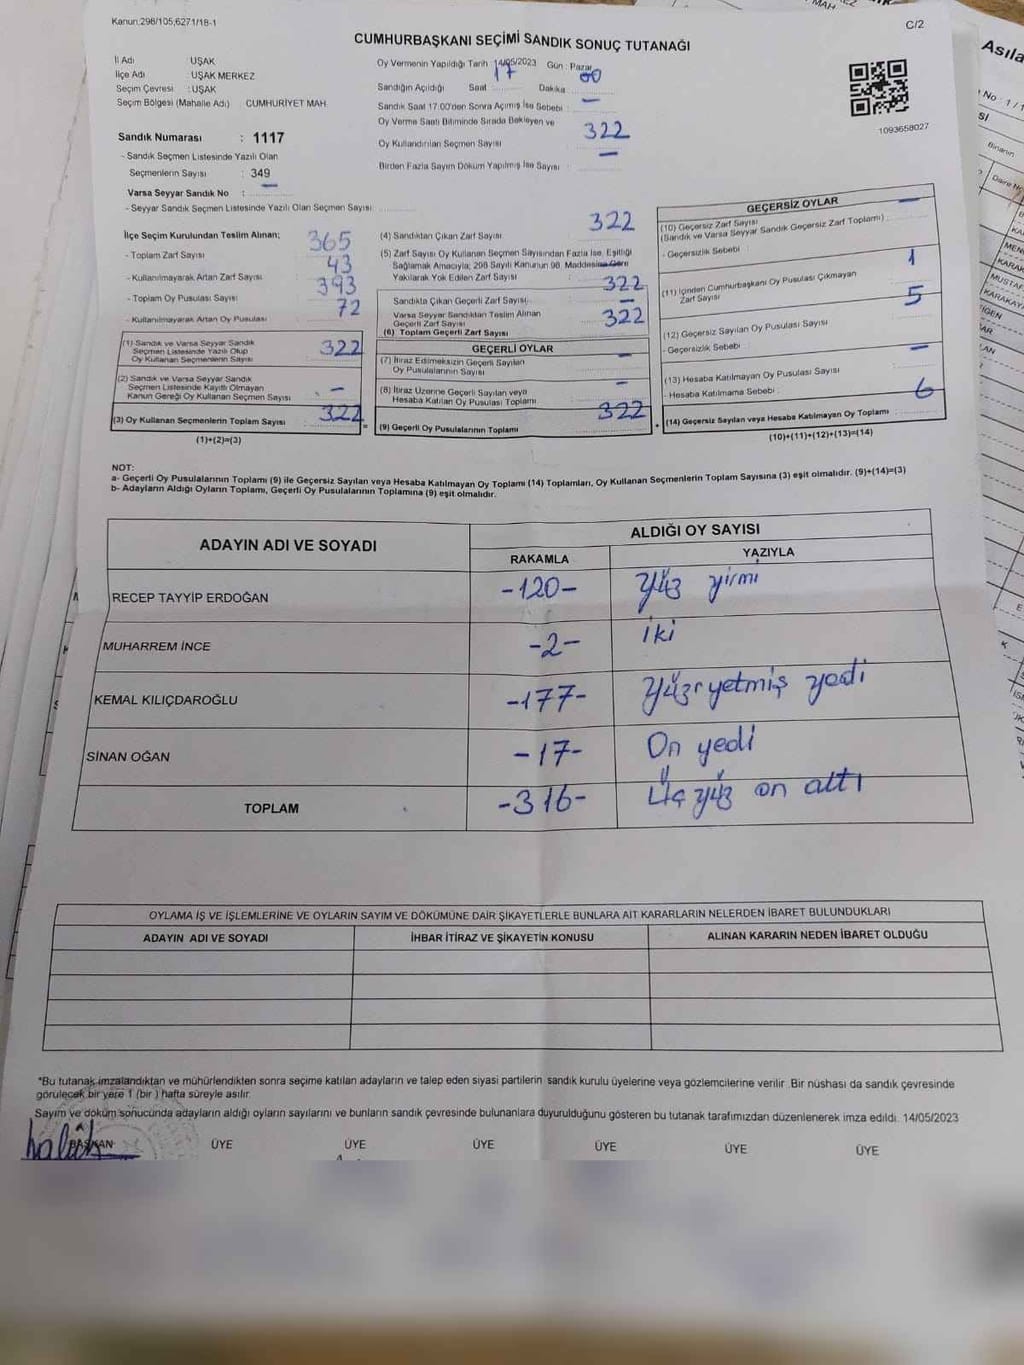 Kanun,298/105,6271/18-1
C/2
CUMHURBAŞKANI SEÇİMİ SANDIK SONUÇ TUTANAĞI
İl Adı : UŞAK
İlçe Adı : UŞAK MERKEZ
Seçim Çevresi : UŞAK
Seçim Bölgesi (Mahalle Adı) CUMHURİYET MAH.
Sandık Numarası : 1117
- Sandık Seçmen Listesinde Yazılı Olan
Seçmenlerin Sayısı : 349
Varsa Seyyar Sandık No : —
- Seyyar Sandık Seçmen Listesinde Yazılı Olan Seçmen Sayısı:
Oy Vermenin Yapıldığı Tarih 14/05/2023 Gün : Pazar
Sandığın Açıldığı Saat 17 Dakika 00
Sandık Saat 17:00'den Sonra Açımış İse Sebebi : —
Oy Verme Saati Bitiminde Sırada Bekleyen ve
Oy Kullandırılan Seçmen Sayısı 322
Birden Fazla Sayım Döküm Yapılmış İse Sayısı : —
1093658027
İlçe Seçim Kurulundan Teslim Alınan;
- Toplam Zarf Sayısı 365
- Kullanılmayarak Artan Zarf Sayısı 43
- Toplam Oy Pusulası Sayısı 393
- Kullanılmayarak Artan Oy Pusulası 72
(1) Sandık ve Varsa Seyyar Sandık
Seçmen Listesinde Yazılı Olup
Oy Kullanan Seçmenlerin Sayısı 322
(2) Sandık ve Varsa Seyyar Sandık
Seçmen Listesinde Kayıtlı Olmayan
Kanun Gereği Oy Kullanan Seçmen Sayısı —
(3) Oy Kullanan Seçmenlerin Toplam Sayısı 322
(1)+(2)=(3)
(4) Sandıktan Çıkan Zarf Sayısı 322
(5) Zarf Sayısı Oy Kullanan Seçmen Sayısından Fazla İse, Eşitliği
Sağlamak Amacıyla; 298 Sayılı Kanunun 98. Maddesine Göre
Yakılarak Yok Edilen Zarf Sayısı : —
Sandıkta Çıkan Geçerli Zarf Sayısı 322
Varsa Seyyar Sandıktan Teslim Alınan
Geçerli Zarf Sayısı —
(6) Toplam Geçerli Zarf Sayısı 322
GEÇERLİ OYLAR
(7) İtiraz Edilmeksizin Geçerli Sayılan
Oy Pusulalarının Sayısı —
(8) İtiraz Üzerine Geçerli Sayılan veya
Hesaba Katılan Oy Pusulası Toplamı —
(9) Geçerli Oy Pusulalarının Toplamı 322
GEÇERSİZ OYLAR
(10) Geçersiz Zarf Sayısı —
(Sandık ve Varsa Seyyar Sandık Geçersiz Zarf Toplamı)
- Geçersizlik Sebebi :
(11) İçinden Cumhurbaşkanı Oy Pusulası Çıkmayan
Zarf Sayısı 1
(12) Geçersiz Sayılan Oy Pusulası Sayısı 5
- Geçersizlik Sebebi :
(13) Hesaba Katılmayan Oy Pusulası Sayısı —
- Hesaba Katılmama Sebebi :
(14) Geçersiz Sayılan veya Hesaba Katılmayan Oy Toplamı 6
(10)+(11)+(12)+(13)=(14)
NOT:
a- Geçerli Oy Pusulalarının Toplamı (9) ile Geçersiz Sayılan veya Hesaba Katılmayan Oy Toplamı (14) Toplamları, Oy Kullanan Seçmenlerin Toplam Sayısına (3) eşit olmalıdır. (9)+(14)=(3)
b- Adayların Aldığı Oyların Toplamı, Geçerli Oy Pusulalarının Toplamına (9) eşit olmalıdır.
ADAYIN ADI VE SOYADI
ALDIĞI OY SAYISI
RAKAMLA YAZIYLA
RECEP TAYYİP ERDOĞAN -120- Yüz yirmi
MUHARREM İNCE -2- İki
KEMAL KILIÇDAROĞLU -177- Yüzyetmiş yedi
SİNAN OĞAN -17- On yedi
TOPLAM -316- Üç yüz on altı
OYLAMA İŞ VE İŞLEMLERİNE VE OYLARIN SAYIM VE DÖKÜMÜNE DAİR ŞİKAYETLERLE BUNLARA AİT KARARLARIN NELERDEN İBARET BULUNDUKLARI
ADAYIN ADI VE SOYADI İHBAR İTİRAZ VE ŞİKAYETİN KONUSU ALINAN KARARIN NEDEN İBARET OLDUĞU
"Bu tutanak imzalandıktan ve mühürlendikten sonra seçime katılan adayların ve talep eden siyasi partilerin sandık kurulu üyelerine veya gözlemcilerine verilir. Bir nüshası da sandık çevresinde
görülecek bir yere 1 (bir) hafta süreyle asılır.
Sayım ve döküm sonucunda adayların aldığı oyların sayılarını ve bunların sandık çevresinde bulunanlara duyurulduğunu gösteren bu tutanak tarafımızdan düzenlenerek imza edildi. 14/05/2023
BAŞKAN ÜYE ÜYE ÜYE ÜYE ÜYE ÜYE